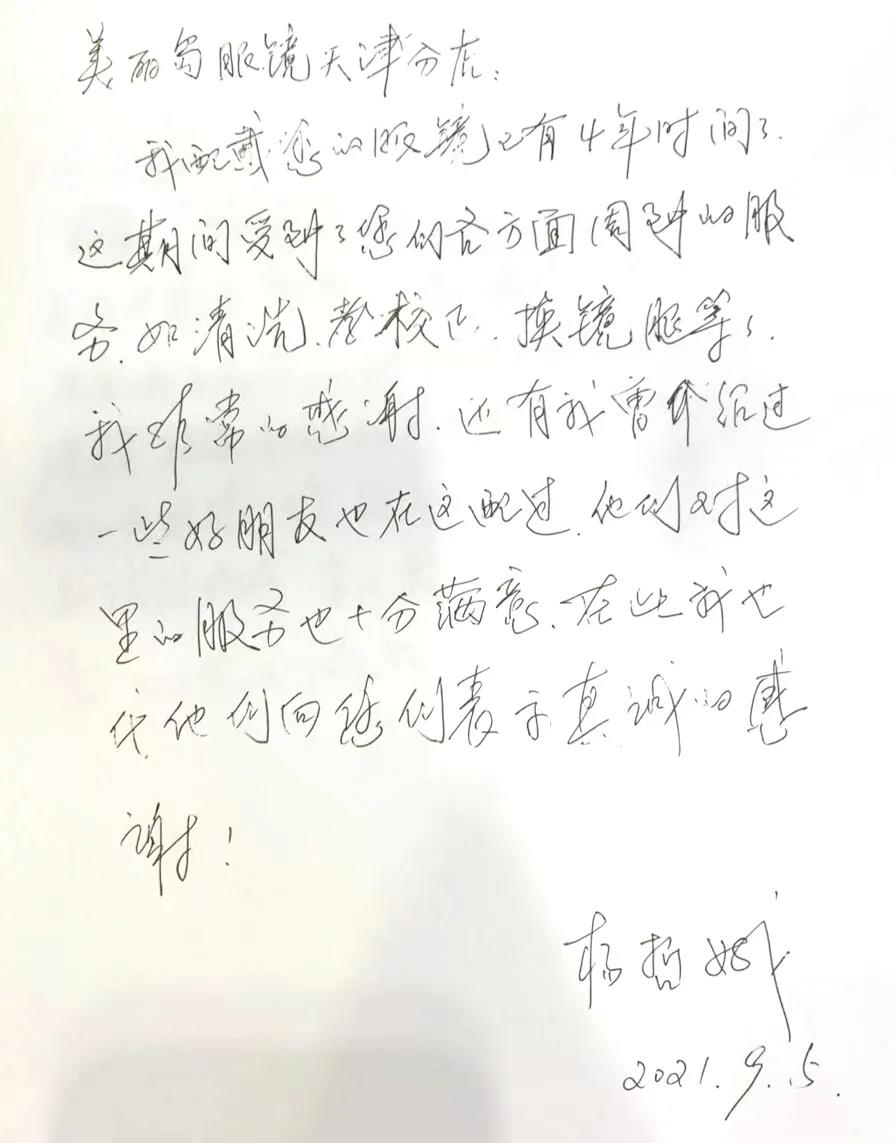 美丽岛眼镜天津分店：
我配戴您的眼镜已有4年时间了.
这期间受到了您们各方面周到的服
务.如清洗.校正.换镜腿等了.
我非常的感谢.还有我曾介绍过
一些好朋友也在这配过.他们对这
里的服务也十分满意.在此我也
代他们向您们表示真诚的感
谢！
杨哲
2021.9.5.